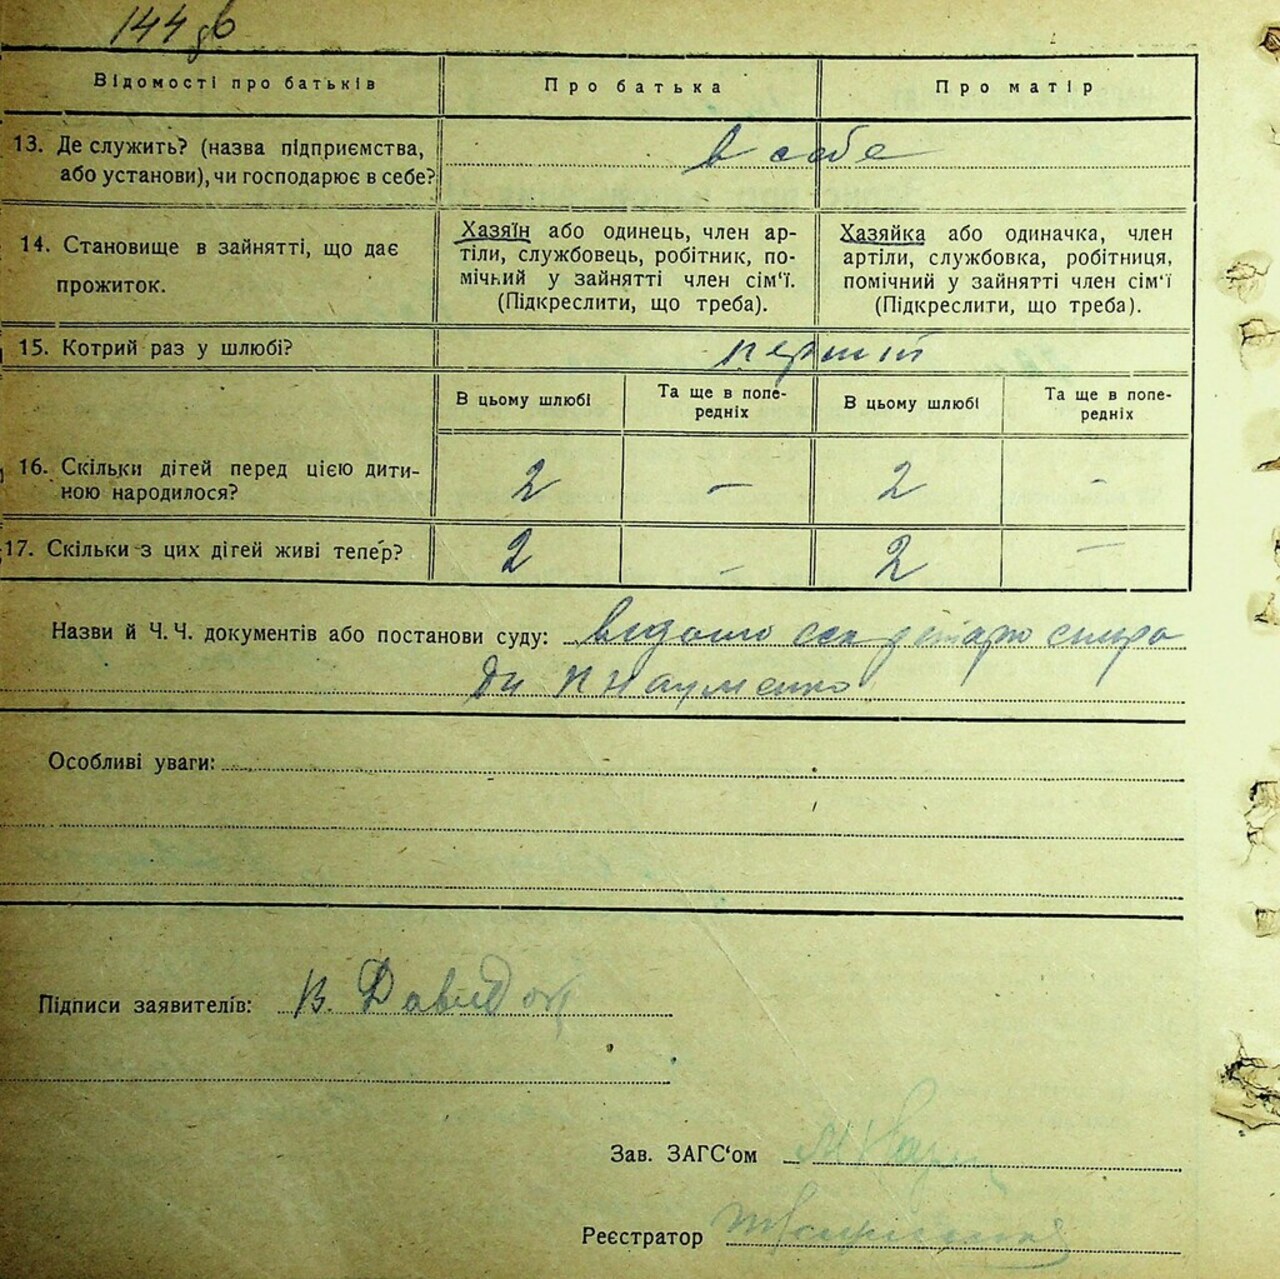 144 зв
Відомості про батьків Про батька Про матір
13. Де служить? (назва підприємства, або установи), чи господарює в себе? в себе
14. Становище в зайнятті, що дає прожиток.
Хазяїн або одинець, член ар-
тіли, службовець, робітник, по-
мічний у зайнятті член сім'ї.
(Підкреслити, що треба).
Хазяйка або одиначка, член
артіли, службовка, робітниця,
помічний у зайнятті член сім'ї
(Підкреслити, що треба).
15. Котрий раз у шлюбі? перший
В цьому шлюбі Та ще в попе-
редніх В цьому шлюбі Та ще в попе-
редніх
16. Скільки дітей перед цією дити-
ною народилося? 2 – 2 -
17. Скільки з цих дітей живі тепер? 2 – 2 –
Назви й Ч. Ч. документів або постанови суду: видомо
Науменко
Особливі уваги:
Підписи заявителів: В. Давидов
Зав. ЗАГС'ом
Реєстратор